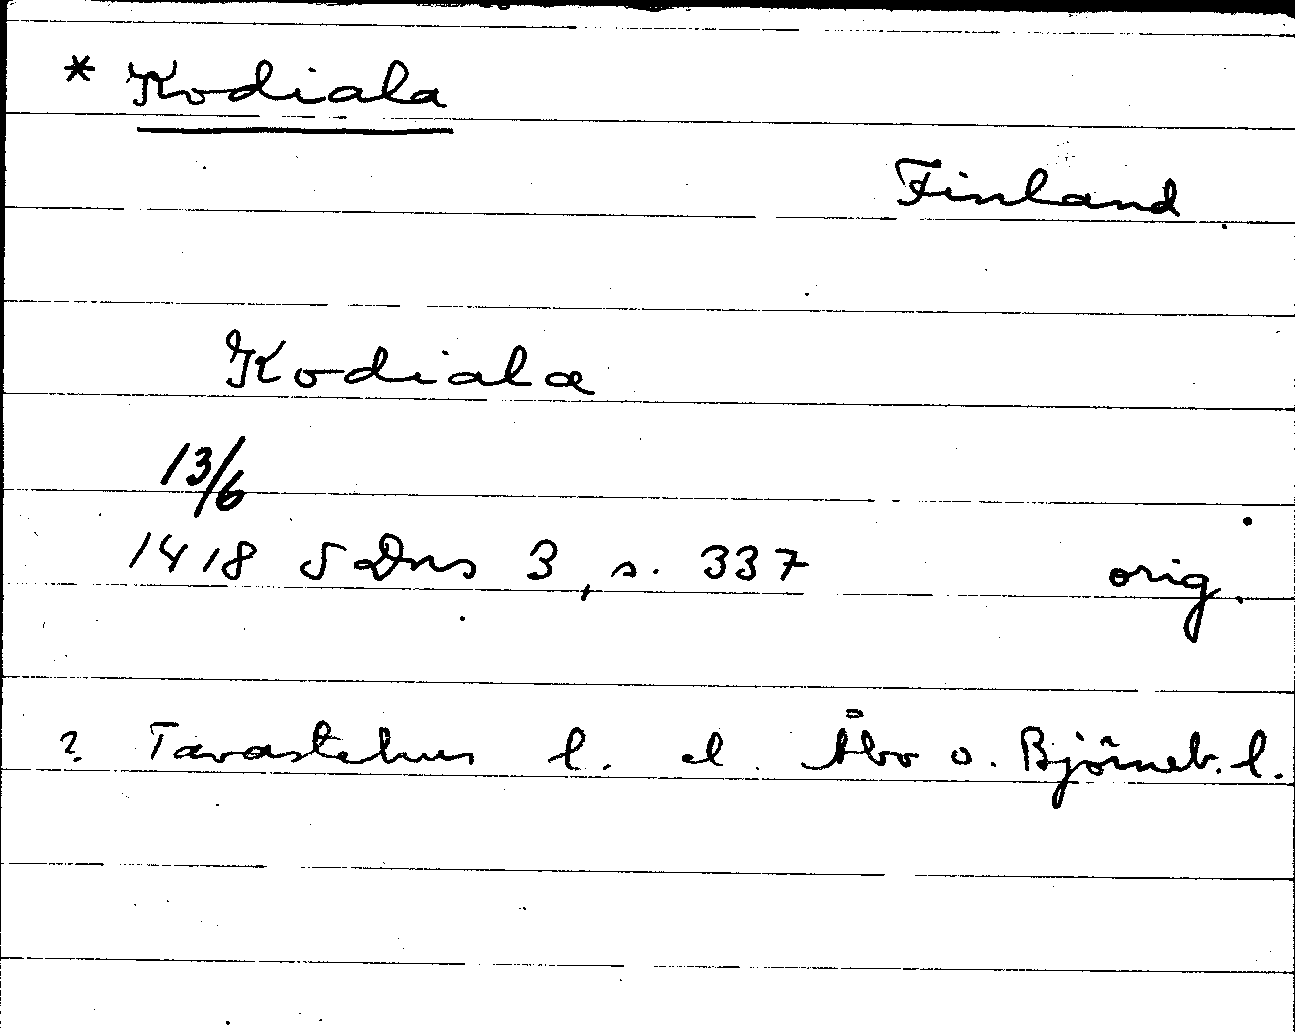 * Kodiala
Finland
Kodialæ
13/6
1418 SDns 3, s. 337 orig.
? Tavastehus l. el. Åbo o. Björneb. l.